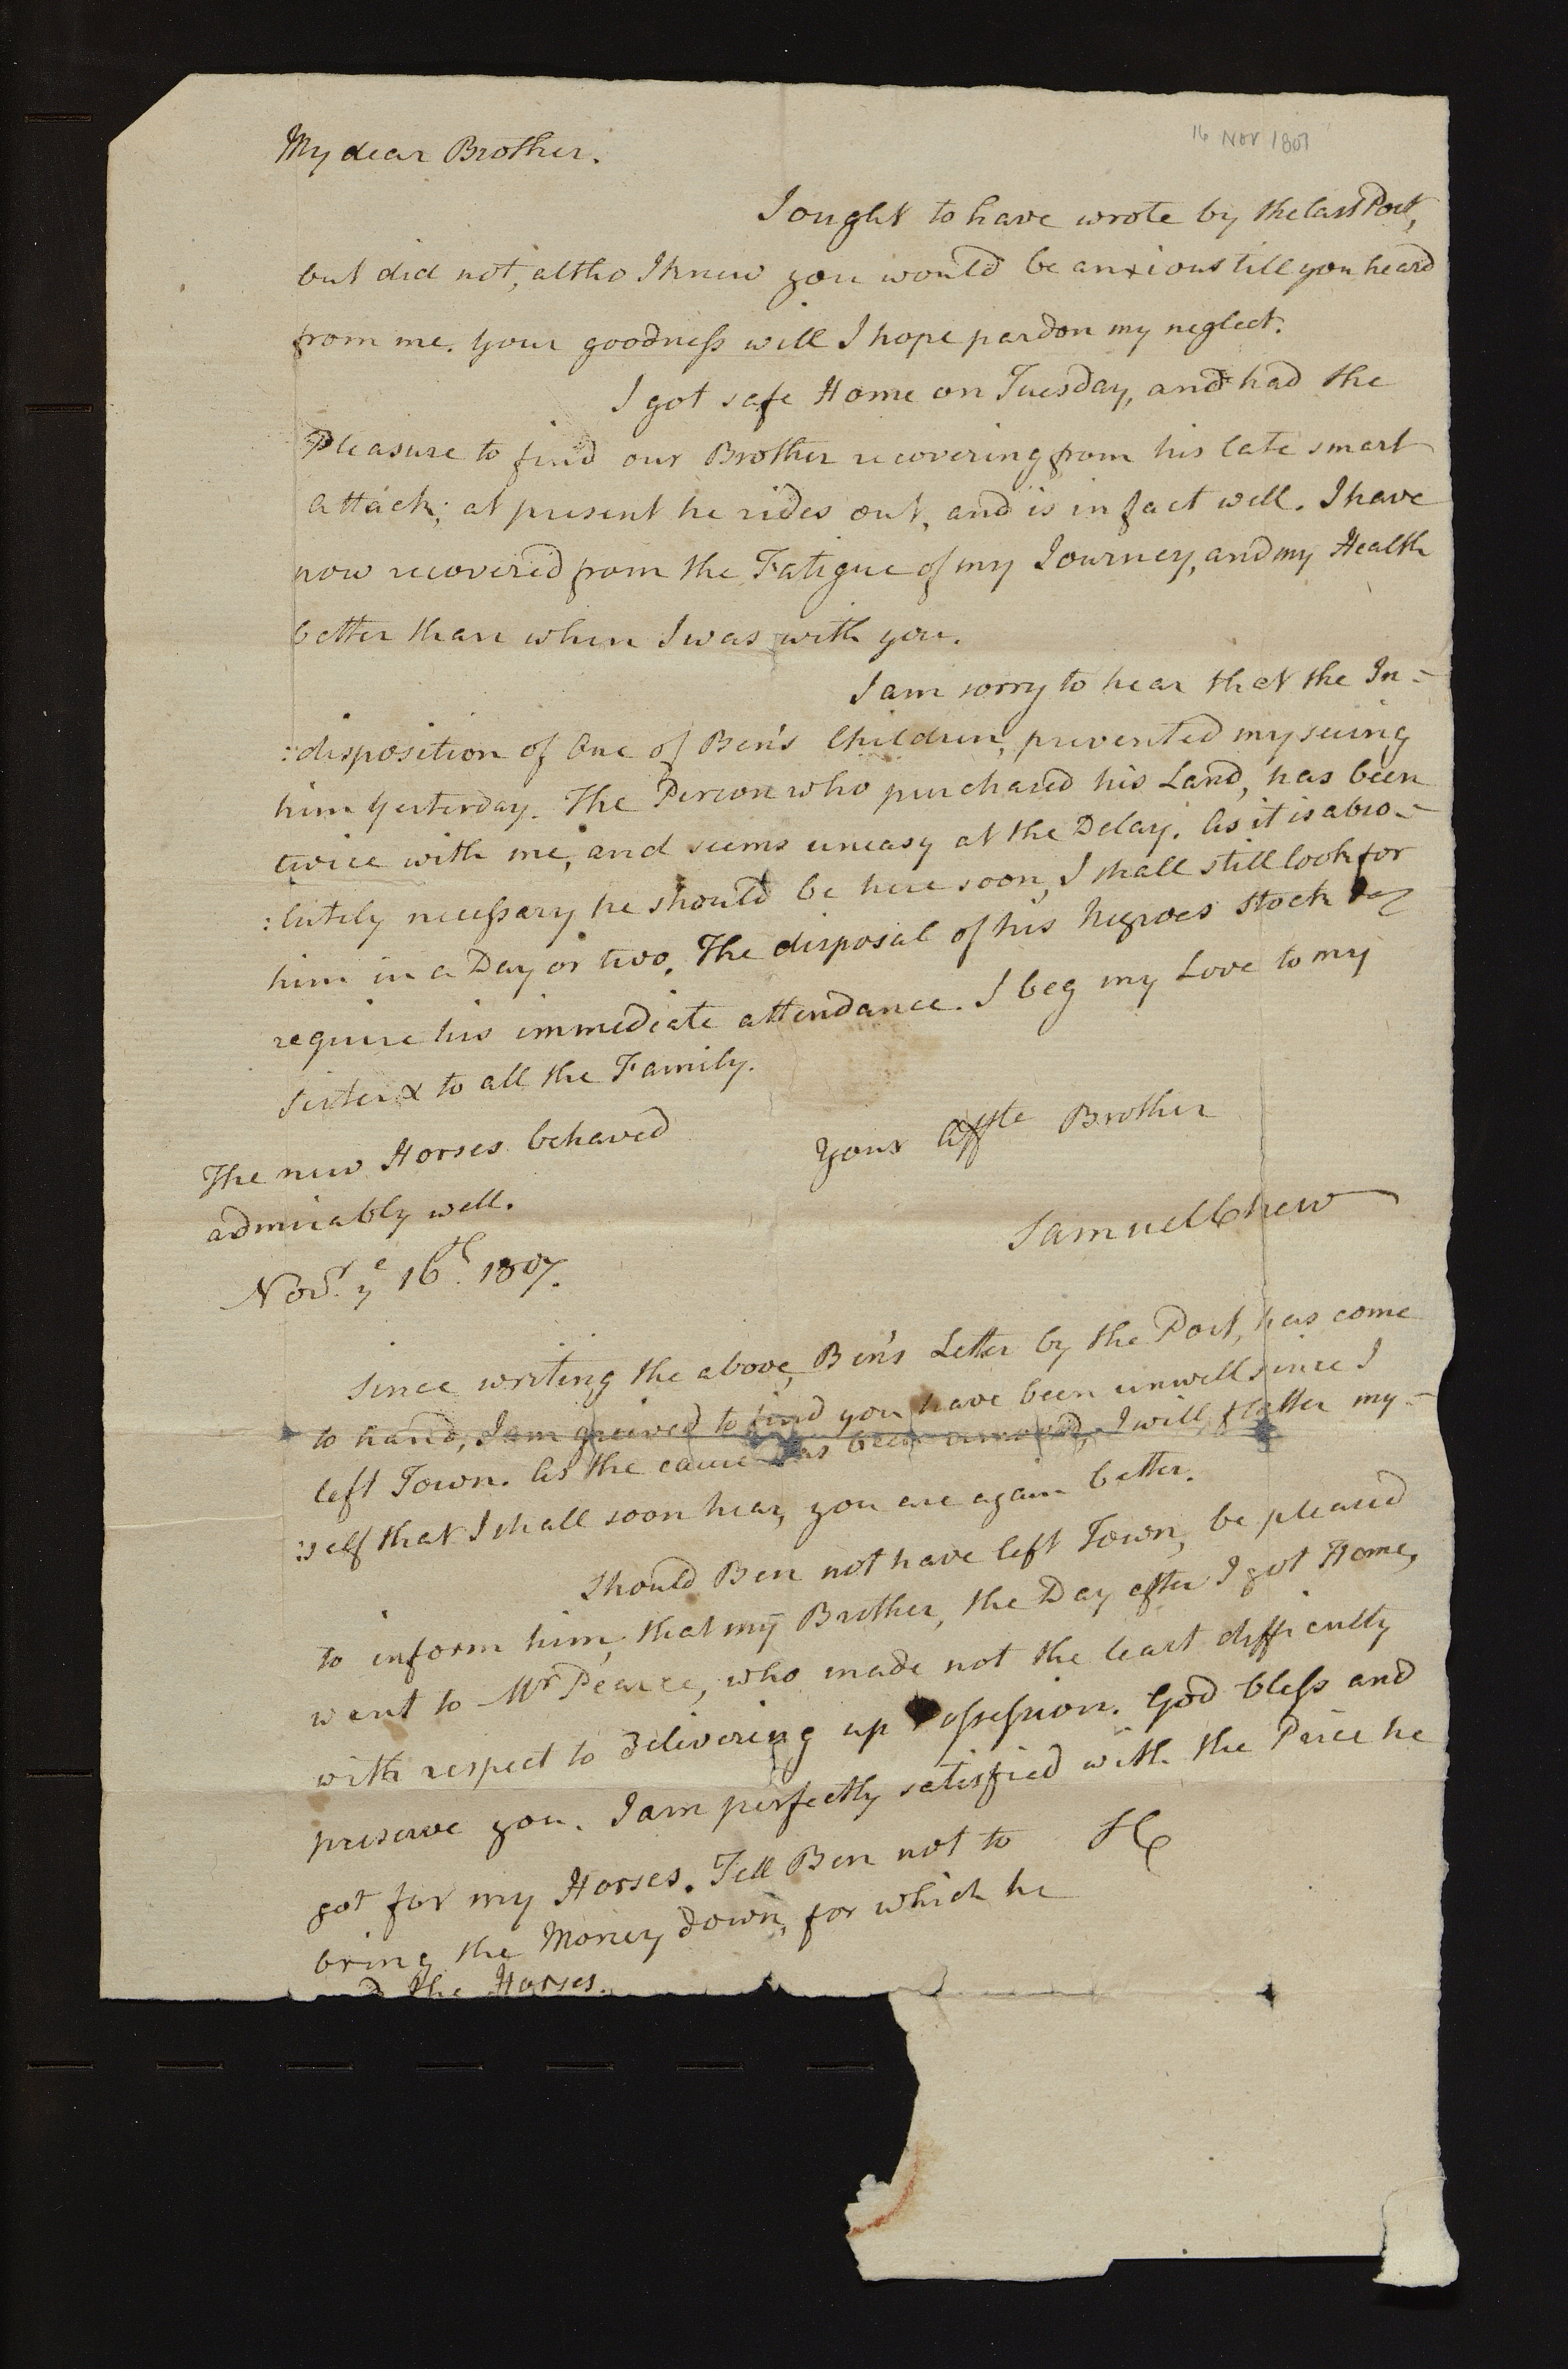 16 Nov 1807
My dear Brother.
I ought to have wrote by the last Post,
but did not, altho I knew you would be anxious till you heard
from me. Your goodness will I hope pardon my neglect.
I got safe Home on Tuesday, and had the
Pleasure to find our Brother recovering from his late smart
attack; at present he rides out, and is in fact well. I have
now recovered from the Fatigue of my Journey, and my Health
better than when I was with you.
I am sorry to hear that the In-
:disposition of One of Ben's Children, prevented my seeing
him Yesterday. The Person who purchased his Land, has been
twice with me, and seems uneasy at the Delay. As it is abso-
:lutely necessary he should be here soon, I shall still look for
him in a Day or two. The disposal of his Negroes Stock
require his immediate attendance. I beg my Love to my
Sister & to all the Family.
Your Affte Brother
Samuel Chew
The new Horses behaved
admirably well.
Novr. ye 16th. 1807.
Since writing the above, Ben's Letter by the Post, has come
to hand, I am greived to find you have been unwell since I
left Town. As the cause has been removed, I will flatter my-
:self that I shall soon hear, you are again better.
Should Ben not have left Town, be pleased
to inform him, that my Brother, the Day after I got Home,
went to Mr Pearce, who made not the least difficulty
with respect to delivering up Possession. God bless and
preserve you. I am perfectly satisfied with the Price he
got for my Horses. Tell Ben not to
SC
bring the Money down, for which he
the Horses.